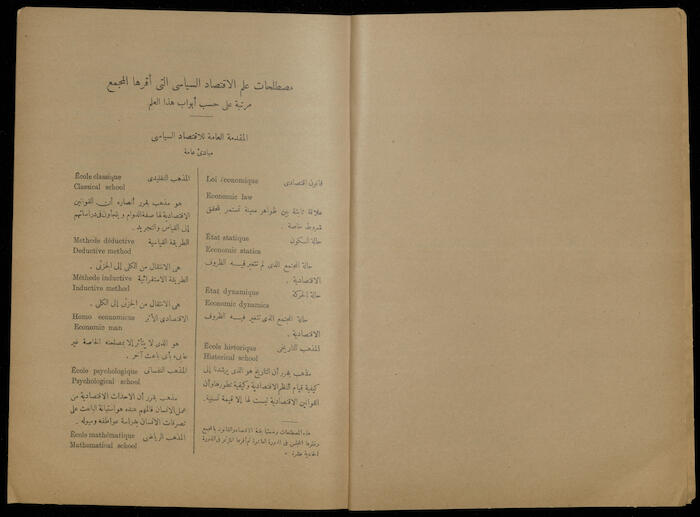 مصطلحات علم الاقتصاد السياسى التى أقرها المجمع
مرتبة على حسب أبواب هذا العلم
المقدمة العامة للاقتصاد السياسى
مبادئ عامة
Loi économique قانون اقتصادى
Economic law
علاقة ثابتة بين ظواهر معينة تستمر لتحقق
شروط خاصة .
État statique حالة السكون
Economic statics
حالة المجتمع الذى لم تتغير فيه الظروف
الاقتصادية .
État dynamique حالة الحركة
Economic dynamics
حالة المجتمع الذى تتغير فيه الظروف
الاقتصادية .
École historique المذهب التاريخى
Historical school
مذهب يقرر أن التاريخ هو الذى يرشدنا إلى
كيفية قيام النظم الاقتصادية وكيفية تطورها وأن
القوانين الاقتصادية ليست لها إلا قيمة نسبية .
هذه المصطلحات وضعتها لجنة الاقتصاد والقانون بالمجمع
ونظرها المجلس فى الدورة العاشرة ثم أقرها المؤتمر فى الدورة
الحادية عشرة .
École classique المذهب التقليدى
Classical school
هو مذهب يقرر أنصاره أن القوانين
الاقتصادية لها صفة الدوام ويلجأون فى دراساتهم
إلى القياس والتجريد .
Méthode déductive الطريقة القياسية
Deductive method
هى الانتقال من الكلى إلى الجزئى .
Méthode inductive الطريقة الاستقرائية
Inductive method
هى الانتقال من الجزئى إلى الكلى .
Homo economicus الاقتصادى الأثر
Economic man
هو الذى لا يتأثر إلا بمصلحته الخاصة غير
عابئ بأى باعث آخر .
École psychologique المذهب النفسانى
Psychological school
مذهب يقرر أن الأحداث الاقتصادية من
عمل الإنسان فالمهم عنده هو استبانة الباعث على
تصرفات الانسان بدراسة عواطفه وميوله .
École mathématique المذهب الرياضى
Mathematical school